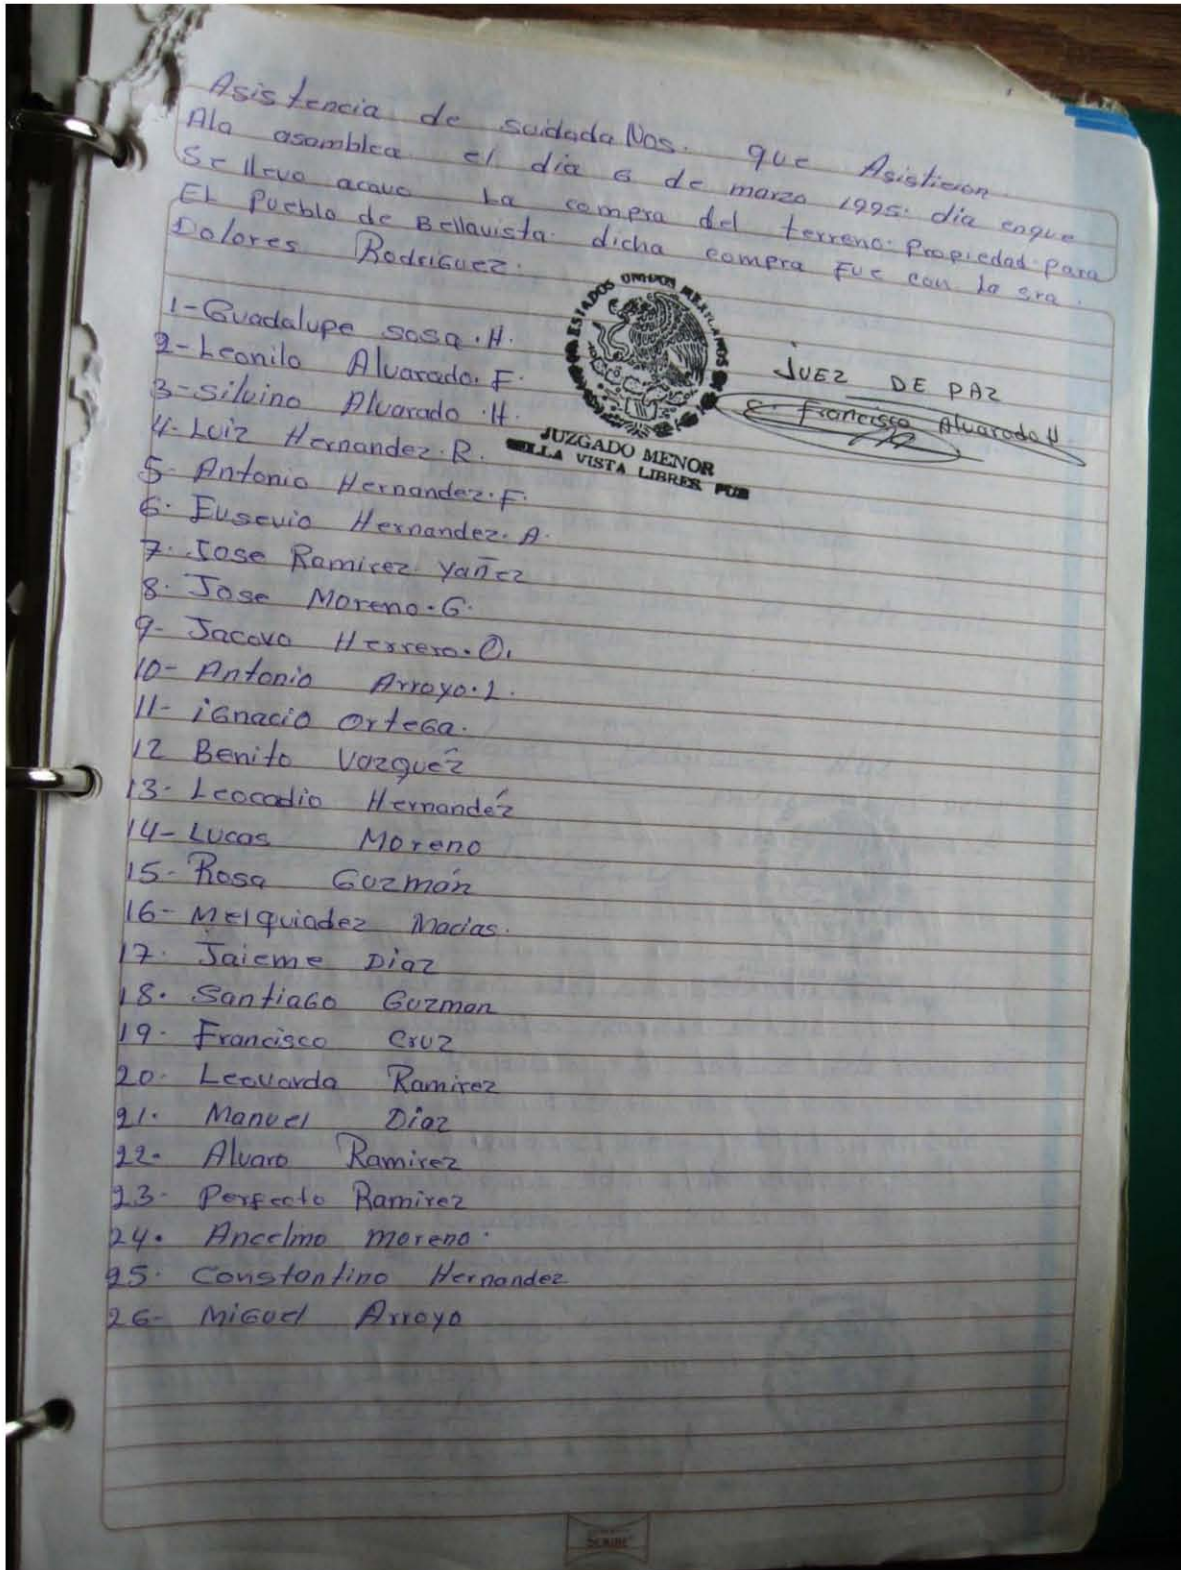 Asistencia de suidadaNos. que Asistieron
Ala asamblea el día 6 de marzo 1995. día enque
Se llevo acavo La compra del terreno. Propiedad para
EL Pueblo de Bellavista. dicha compra Fue con la sra.
Dolores Rodriguez.
ESTADOS UNIDOS MEXICANOS
JUEZ DE PAZ
C. Francisco Alvarado H.
JUZGADO MENOR
BELLA VISTA LIBRES PUE
1-Guadalupe sosa.H.
2-Leonilo Alvarado.F.
3-Silvino Alvarado.H.
4-Luiz Hernandez.R.
5-Antonio Hernandez.F.
6. Eusevio Hernandez.A.
7. Jose Ramirez Yañez
8. Jose Moreno.G.
9- Jacovo Herrero.O.
10- Antonio Arroyo.L.
11- iGnacio OrteGa.
12 Benito Vazquéz
13- Leocadio Hernandéz
14- Lucas Moreno
15- Rosa Guzmán
16- Melquiadez Macias.
17. Jaieme Diaz
18. SantiaGo Guzman
19. Francisco Cruz
20. Leovarda Ramirez
21. Manuel Diaz
22. Alvaro Ramirez
23. Perfecto Ramirez
24. Ancelmo moreno.
25. Constantino Hernandez
26- MiGuel Arroyo
Scribe